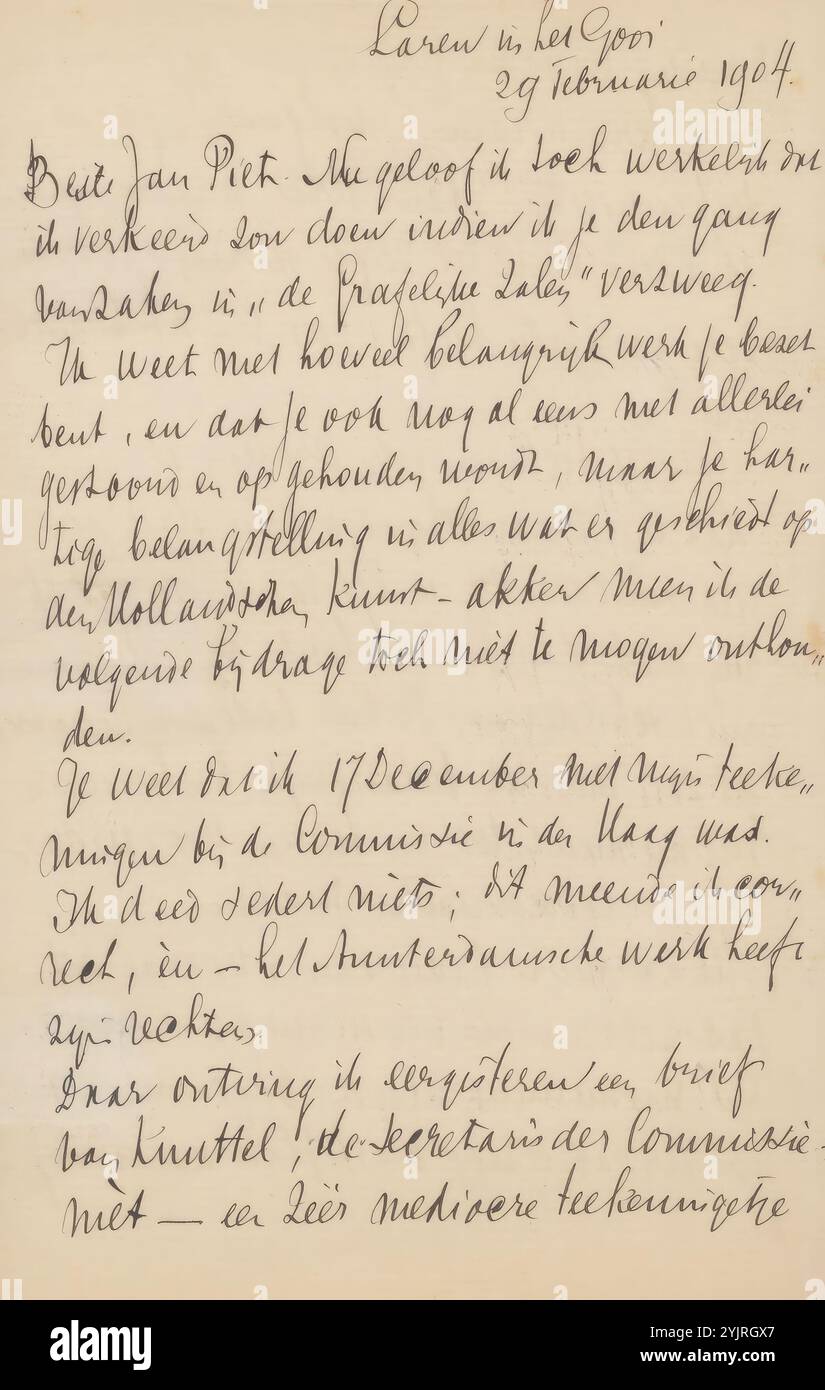 Laren in het Gooi
29 Februarie 1904.
Beste Jan Piet. Nu geloof ik toch werkelijk dat
ik verkeerd zou doen indien ik je den gang
van zaken in „de Grafelijke Zalen" verzweeg.
Ik weet met hoeveel belangrijk werk je bezet
bent, en dat je ook nog al eens met allerlei
gestoord en opgehouden wordt, maar je har„
tige belangstelling in alles wat er geschiedt op
den Hollandschen kunst-akker meen ik de
volgende bijdrage toch niet te mogen onthou„
den.
Je weet dat ik 17 December met mijn teeke„
ningen bij de Commissie in den Haag was.
Ik deed sedert niets; dit meende ik cor„
rect, èn – het Amsterdamsche werk heeft
zijn rechten.
Daar ontving ik eergisteren een brief
van Knuttel, de secretaris der Commissie –
niet – een zéér mediocre teekeningetje
alamy
alamy
alamy
alamy
alamy
Image ID: 2YJRGX7
www.alamy.com